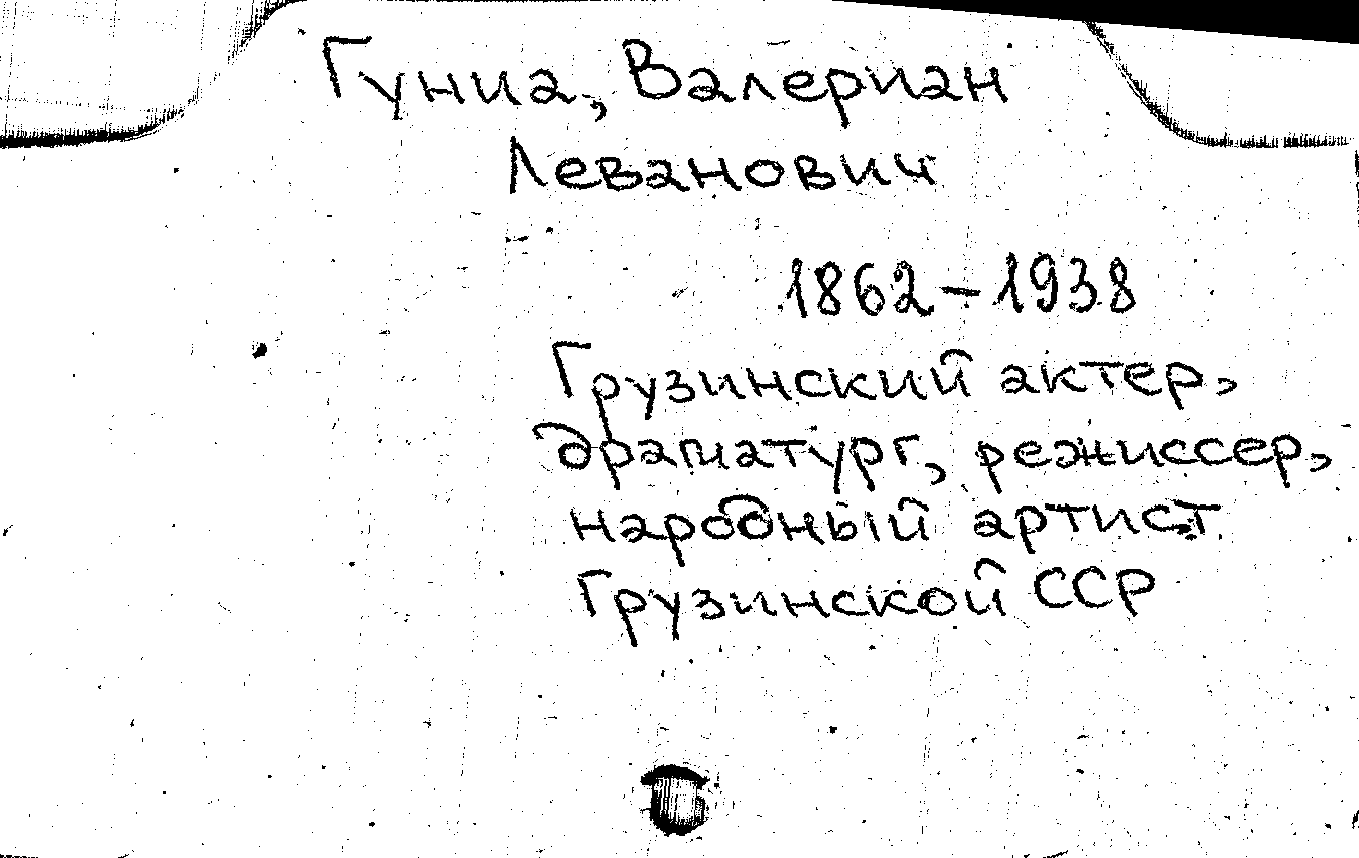 Гуниа, Валериан
Леванович
1862-1938
Грузинский актер,
драматург, режиссер,
народный артист
Грузинской ССР